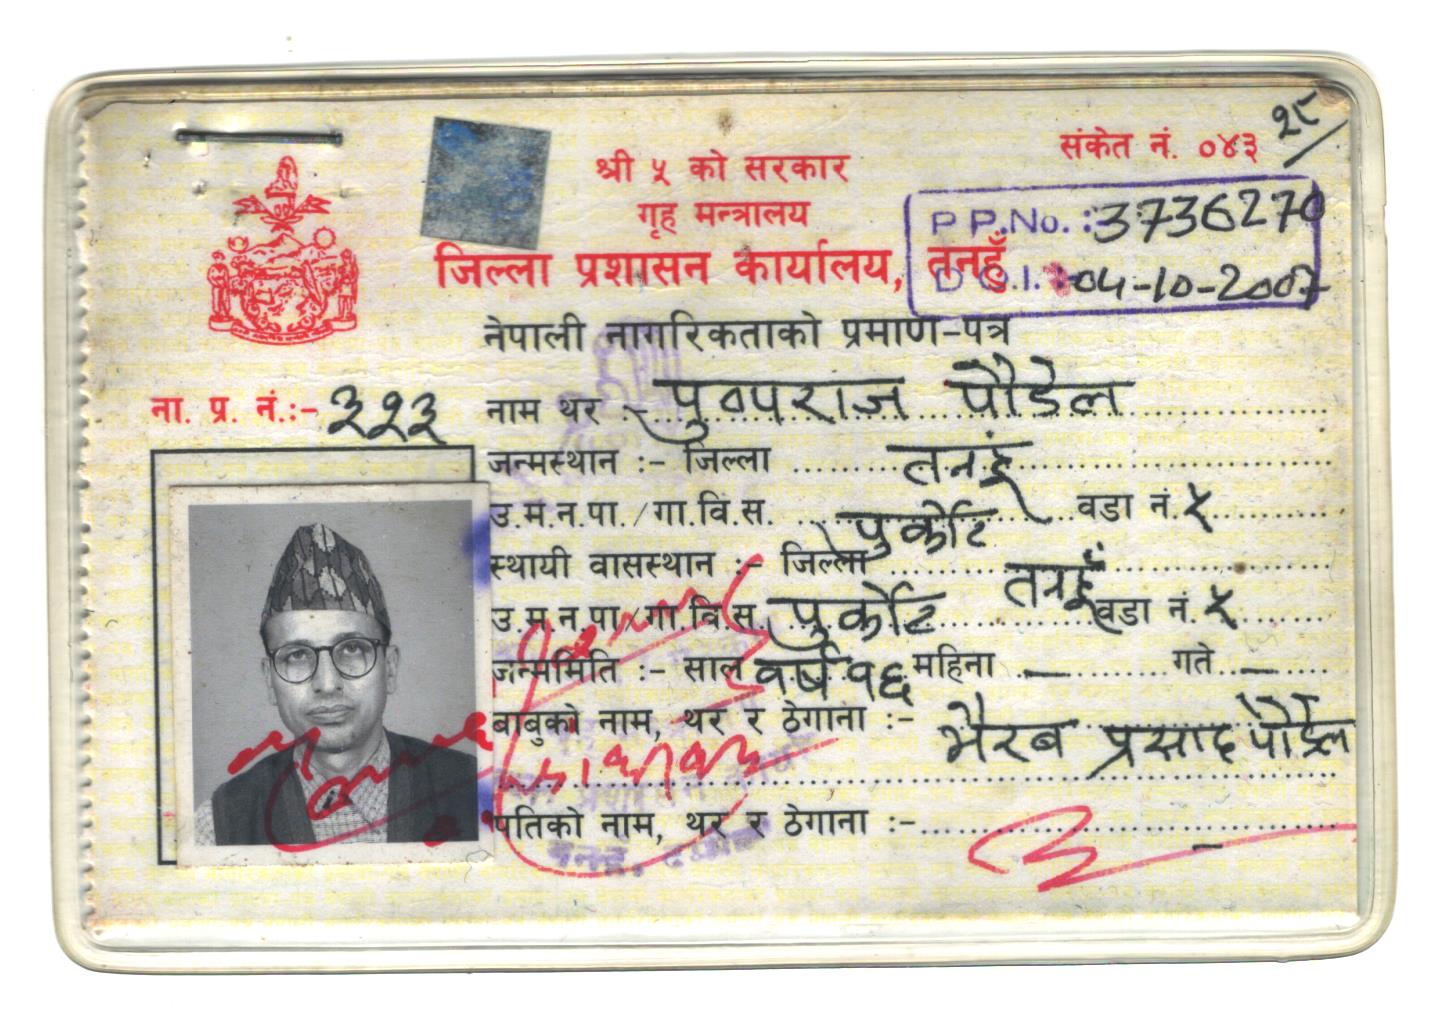 संकेत नं. ०४३
२८
श्री ५ को सरकार
गृह मन्त्रालय
जिल्ला प्रशासन कार्यालय, तनहुँ
P P.No. : 3736270
D O.I. : 04-10-2007
नेपाली नागरिकताको प्रमाण-पत्र
ना. प्र. नं.:- ३२३
नाम थर :- पुण्पराज पौडेल
जन्मस्थान :- जिल्ला तनहुं
उ.म.न.पा./गा.वि.स. पुर्कोट वडा नं. ५
स्थायी वासस्थान :- जिल्ला तनहुँ
उ.म.न.पा/गा.वि.स. पुर्कोट वडा नं. ५
जन्ममिति :- साल वर्ष १६ महिना — गते —
बाबुको नाम, थर र ठेगाना :- भैरब प्रसाद पौडेल
पतिको नाम, थर र ठेगाना :- –